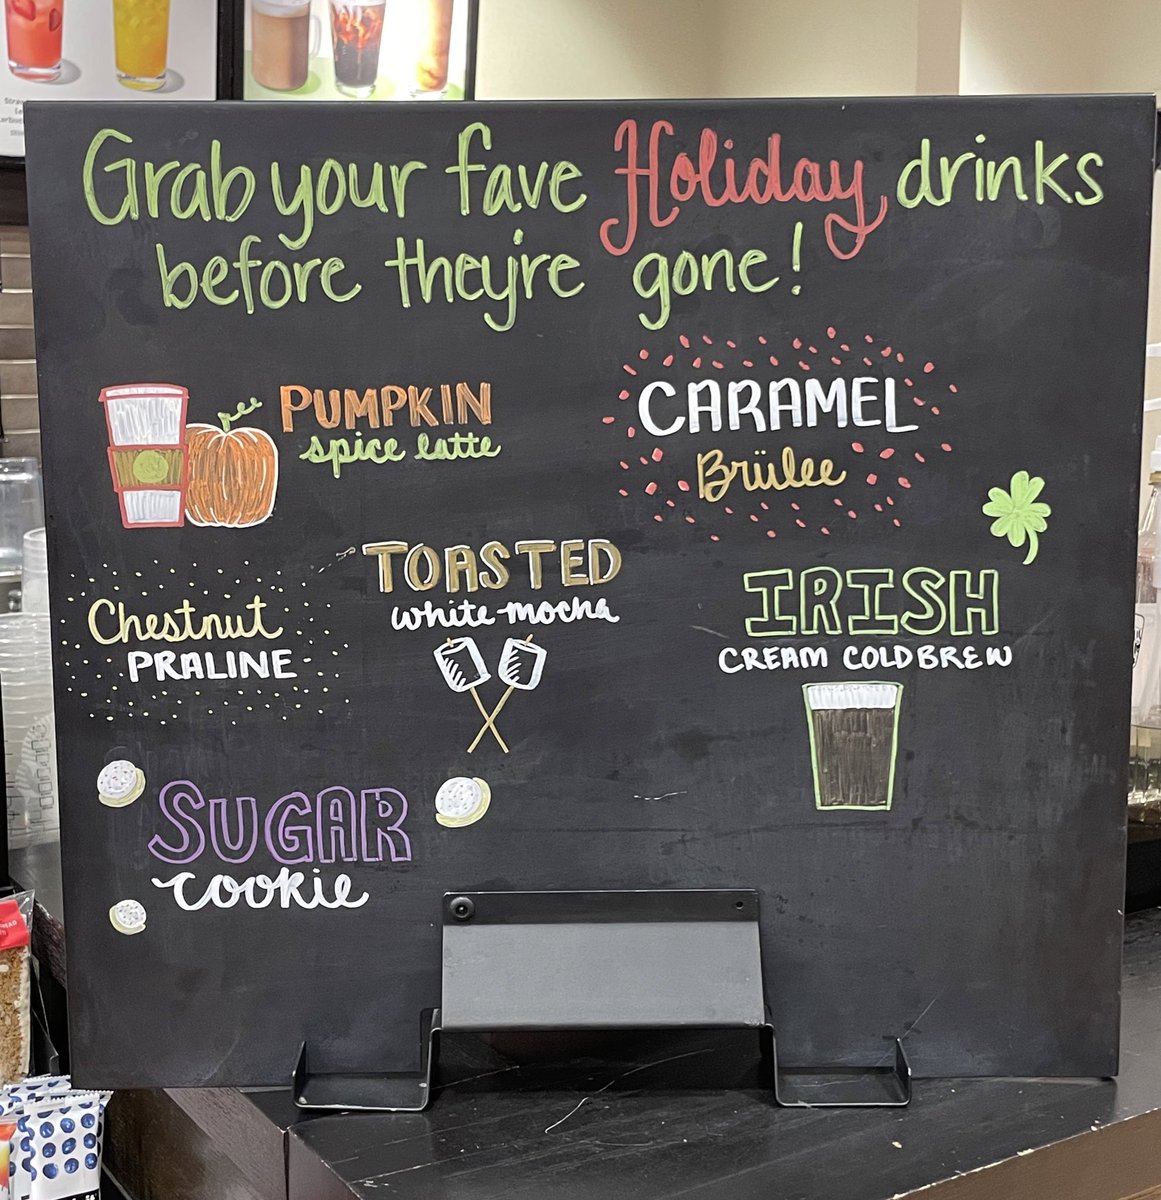 Grab your fave Holiday drinks
before they're gone!
PUMPKIN
spice latte
CARAMEL
Brülee
TOASTED
white mocha
Chestnut
PRALINE
IRISH
CREAM COLD BREW
SUGAR
cookie